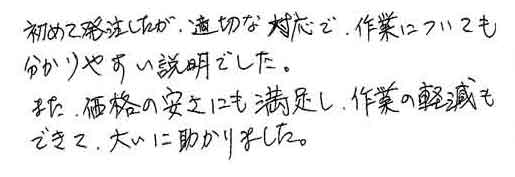 初めて発注したが、適切な対応で、作業についても
分かりやすい説明でした。
また、価格の安さにも満足し、作業の軽減も
できて、大いに助かりました。